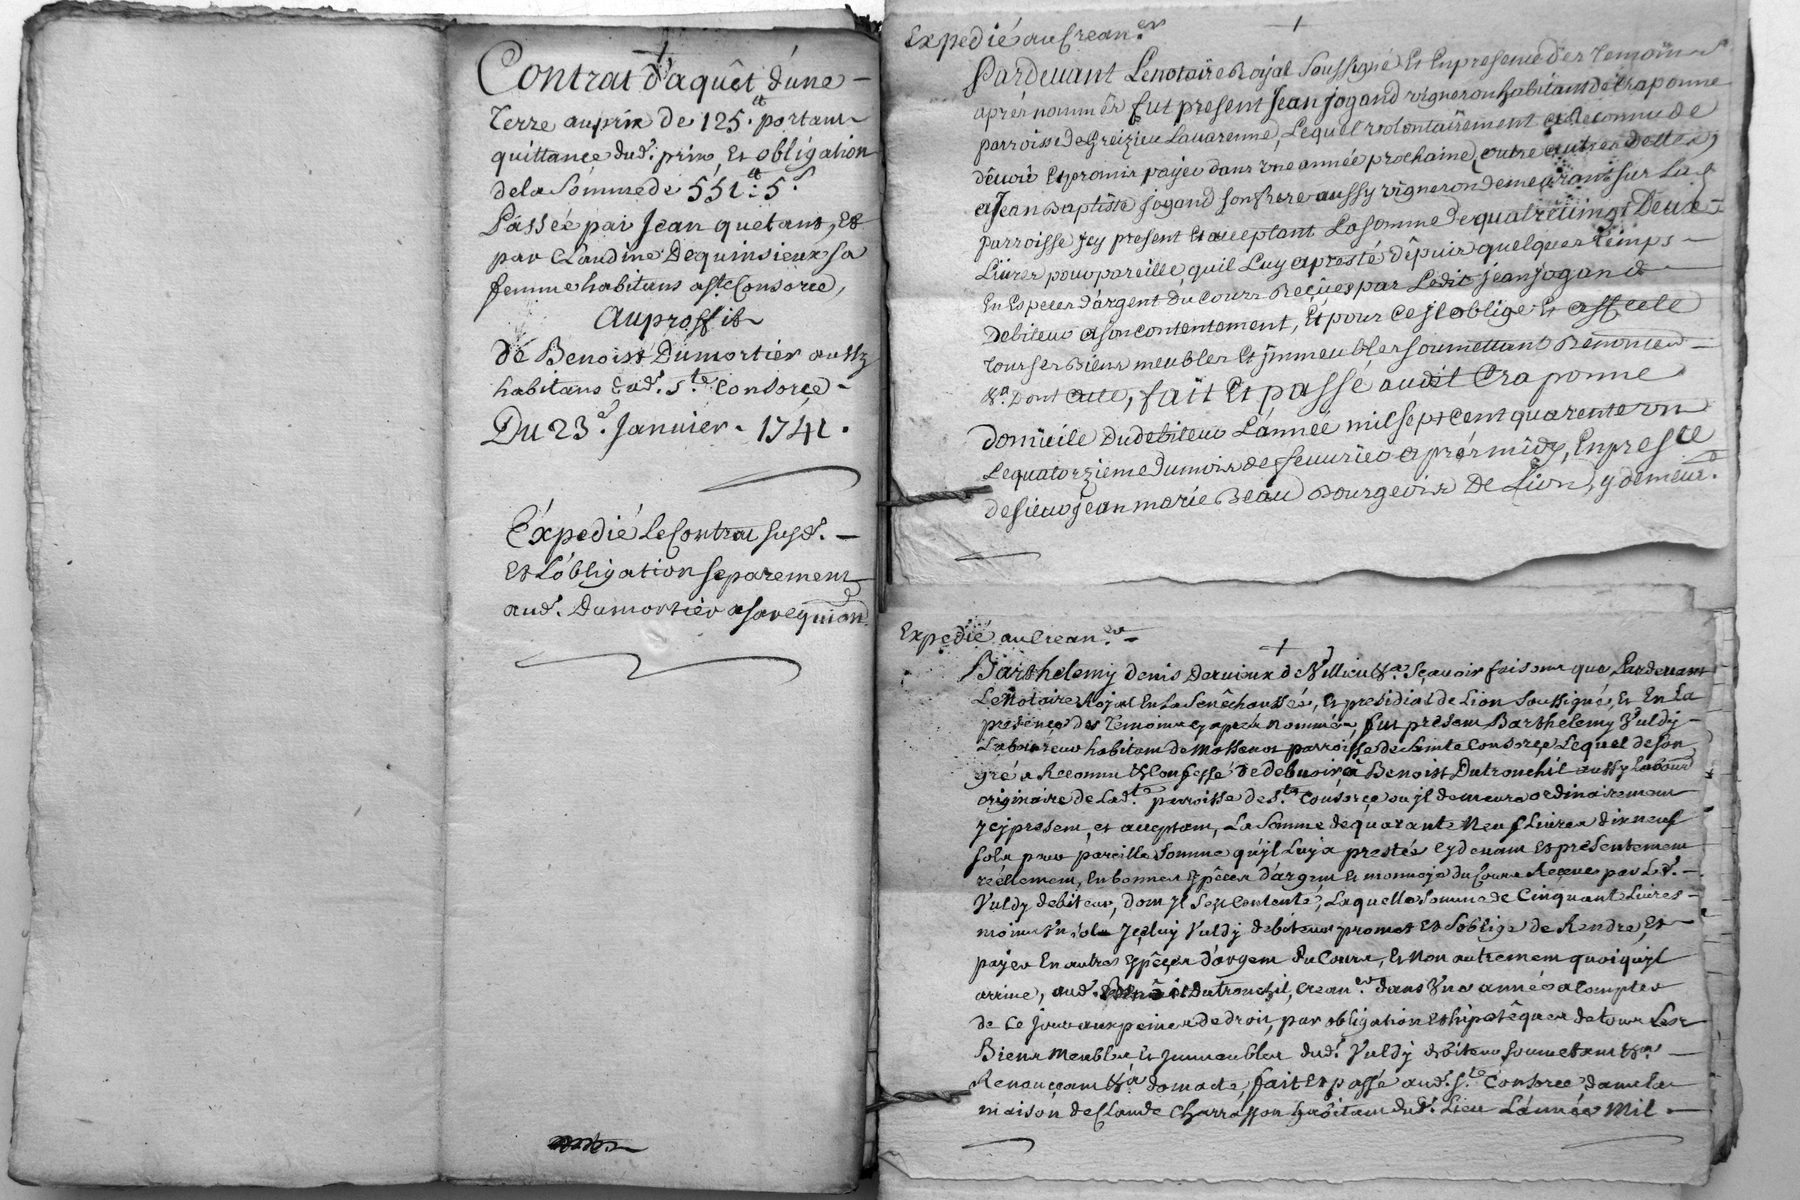 Contrat d'aquêt d'une
Terre au prix de 125.tt portant
quittance dud. prix, Et obligation
de la Somme de 551tt: 5s
Passée par Jean quetant, Et
par Claudine Dequinsieux sa
femme habitans a Ste Consorce,
Au proffit
de Benoist Dumortier aussy
habitant Aud. Ste Consorce
Du 23e. Janvier. 1741.
Expedié Le Contrat susd.
Et L'obligation separement
aud. Dumortier
Expedié au Crean.er
Pardevant Le notaire Royal Soussigné Et En presence des Temoins
aprés nommés fut present Jean Jogand vigneron habitant de Craponne
parroisse de Greizieu Lavarenne, Lequel volontairement a Reconnu de
dêvoir Et promis payer dans une année prochaine, outre autres dettes,
a Jean Baptiste Jogand son frere aussy vigneron demeurant sur La
parroisse Jcy present Et acceptant La somme de quatre vingt Deux
Livres pour pareille qu'il Luy a presté dêpuis quelques temps
En Especes d'argent du cours Reçües par Ledit Jean Jogand
Debiteur a son contentement, Et pour ce Jl oblige Et affecte
tous ses Biens meubles Et Jmmeubles soumettant Renoncent
&a. Dont acte, fait Et passé audit Craponne
domicile Du debiteur L'année mil sept cent quarente un
Le quatorzieme du mois de fevvrier aprés midy, En pres.ce
de sieur Jean marie Beau Bourgeois De Lion, y demeur.t
Expedié au Crean.er
Barthelemy denis Dervieux de Villieu &a. Sçavoir faisons que Pardevant
Le Notaire Royal En La Senêchaussée, Et presidial de Lion Soussigné, Et En La
presence des Temoins cy aprés nommés, fut present Barthelemy Vuldy
Laboureur habitant de parroisse de Sainte Consorce Lequel de son
gré a Reconnu & Confessé de debvoir, a Benoist Dutronchil aussy Labour.
originaire de Lad.te parroisse de S.te Consorce ou jl demeure ordinairement
Jcy present, et acceptant, La Somme de quarante Neuf Livres dix neuf
sols pour pareille Somme qu'jl Luy a prestée cy devant Et présentement
réellement, En bonnes Espêces d'argent Et monnoye du Cours Reçues par Led.
Vuldy debiteur, dont jl S'est Contenté, Laquelle Somme de Cinquant Livres
moins Vn sols Jceluy Vuldy debiteur promet Et S'oblige de Rendre, Et
payer En autres Espêces d'argent Du Cours, Et Non autrement quoiqu'jl
arrive, aud. Benoist Dutronchil, Crean.er dans Vne année a Compter
de ce Jour aux peines de droit, par obligation Et hipotêques de tous Les
Biens Meubles Et Jmmeubles dud. Vuldy debiteur Soumetant &a.
Renonçant &a dont acte, fait Et passé aud. S.te Consorce dans La
maison de Claude Charrasson habitant dud. Lieu L'année Mil